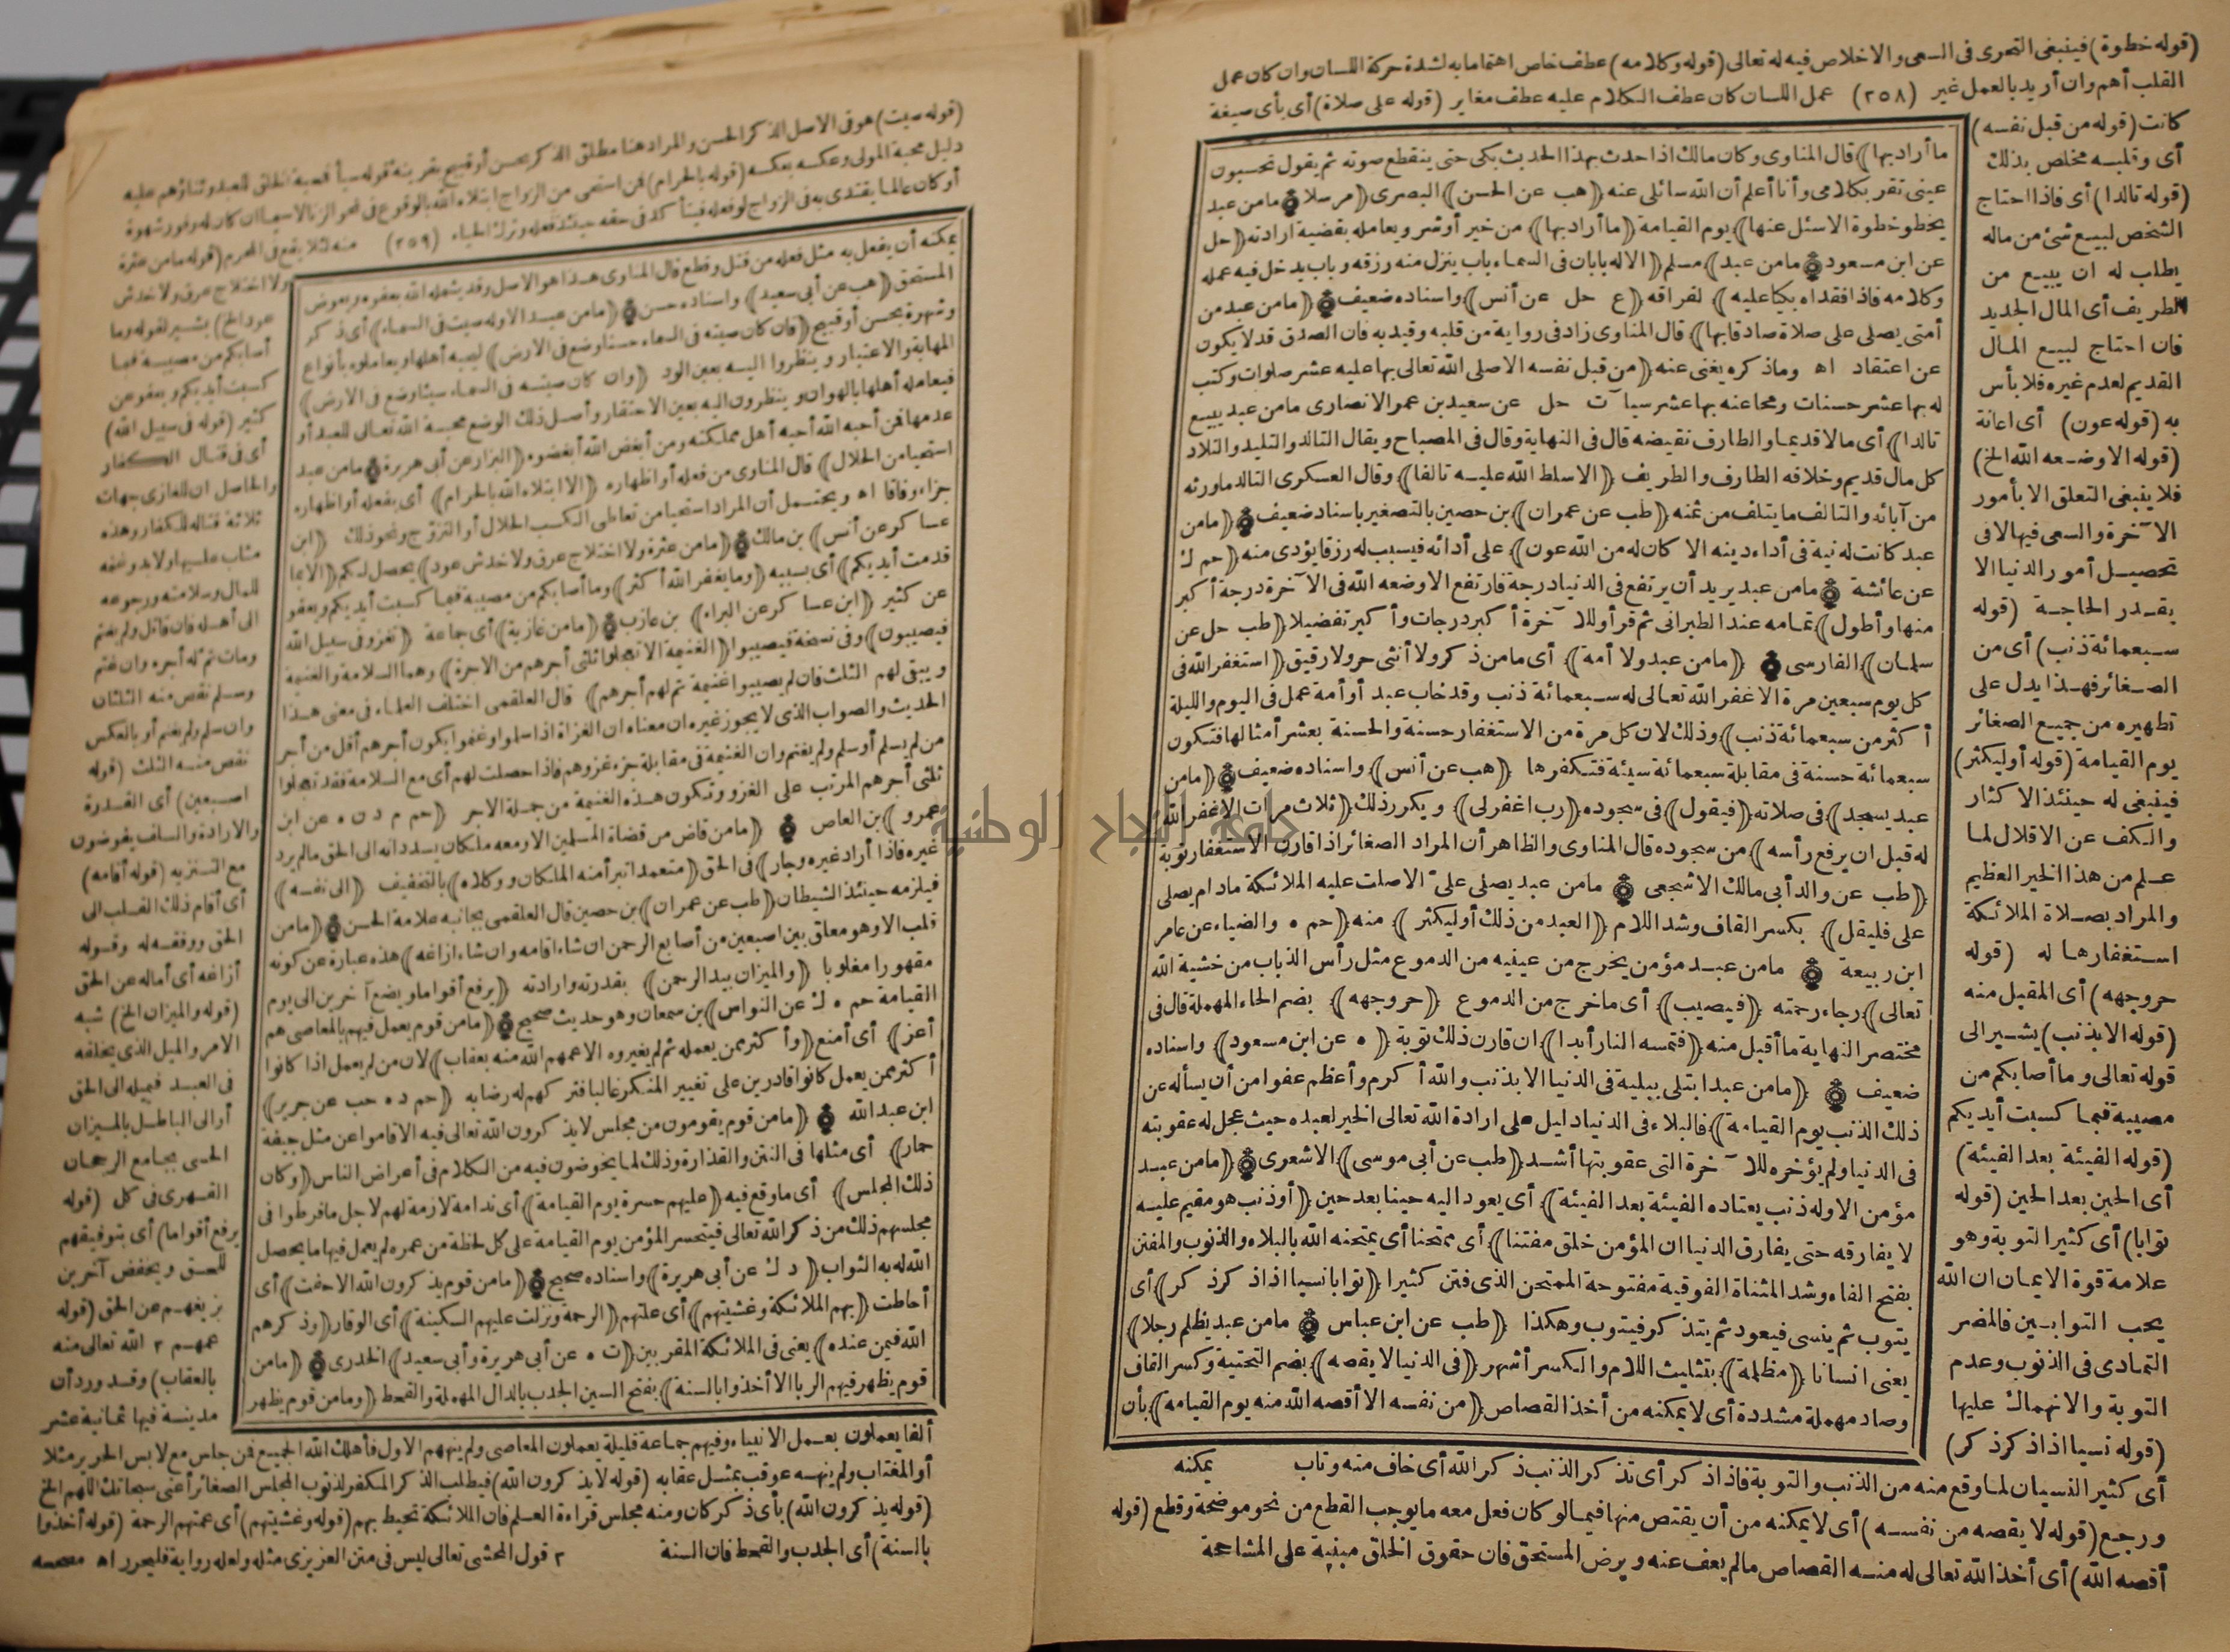 (قوله خطوة) فينبغى التحرى فى السعى والاخلاص فيه له تعالى (قوله وكلامه) عطف خاص اهتماما به لشدة حركة اللسان وان كان عمل
القلب أهم وان أريد بالعمل غير (٢٥٨) عمل اللسان كان عطف الكلام عليه عطف مغاير (قوله على صلاة) أى بأى صيغة
كانت (قوله من قبل نفسه)
أى وقلبه مخلص بذلك
(قوله تالدا) أى فاذا احتاج
الشخص لبيع شئ من ماله
يطلب له ان يبيع من
الطريف أى المال الجديد
فان احتاج لبيع المال
القديم لعدم غيره فلا بأس
به (قوله عون) أى اعانة
(قوله الا وضعه الله الخ)
فلا ينبغى التعلق الا بأمور
الآخرة والسعى فيها لا فى
تحصيل أمور الدنيا الا
بقدر الحاجة (قوله
سبعمائة ذنب) أى من
الصغائر فهذا يدل على
تطهيره من جميع الصغائر
يوم القيامة (قوله أو ليكثر)
فينبغى له حينئذ الاكثار
والكف عن الاقلال لما
علم من هذا الخير العظيم
والمراد بصلاة الملائكة
استغفارها له (قوله
حر وجهه) أى المقبل منه
(قوله الا بذنب) يشير الى
قوله تعالى وما أصابكم من
مصيبة فبما كسبت أيديكم
(قوله الفيئة بعد الفيئة)
أى الحين بعد الحين (قوله
توابا) أى كثير التوبة وهو
علامة قوة الايمان ان الله
يحب التوابين فالمضر
التمادى فى الذنوب وعدم
التوبة والانهماك عليها
(قوله نسيا اذا ذكر ذكر)
ما أراد بها) قال المناوى وكان مالك اذا حدث بهذا الحديث بكى حتى ينقطع صوته ثم يقول تحسبون
عينى تقر بكلامى وأنا أعلم أن الله سائلى عنه (هب عن الحسن) البصرى (مرسلا) ما من عبد
يخطو خطوة الا سئل عنها) يوم القيامة (ما أراد بها) من خير أو شر ويعامله بقضية ارادته (حل
عن ابن مسعود) ما من عبد) مسلم (الا له بابان فى السماء باب ينزل منه رزقه وباب يدخل فيه عمله
وكلامه فاذا فقداه بكيا عليه) لفراقه (ع حل عن أنس) واسناده ضعيف (ما من عبد من
أمتى يصلى على صلاة صادقا بها) قال المناوى زاد فى رواية من قلبه وقيد به فان الصدق قد لا يكون
عن اعتقاد اه وما ذكره يغنى عنه (من قبل نفسه الا صلى الله تعالى بها عليه عشر صلوات وكتب
له بها عشر حسنات ومحا عنه بها عشر سيآت حل عن سعيد بن عمر الانصارى ما من عبد يبيع
تالدا) أى مالا قديما والطارف نقيضه قال فى النهاية وقال فى المصباح ويقال التالد والتليد والتلاد
كل مال قديم وخلافه الطارف والطريف (الا سلط الله عليه تالفا) وقال العسكرى التالد ما ورثه
من آبائه والتالف ما يتلف من ثمنه (طب عن عمران) بن حصين بالتصغير باسناد ضعيف (ما من
عبد كانت له نية فى أداء دينه الا كان له من الله عون) على أدائه فيسبب له رزقا يؤدى منه (حم ك
عن عائشة ما من عبد يريد أن يرتفع فى الدنيا درجة فارتفع الا وضعه الله فى الآخرة درجة أكبر
منها وأطول) تمامه عند الطبرانى ثم قرأ وللآخرة أكبر درجات وأكبر تفضيلا (طب حل عن
سلمان) الفارسى (ما من عبد ولا أمة) أى ما من ذكر ولا أنثى حر ولا رقيق (استغفر الله فى
كل يوم سبعين مرة الا غفر الله تعالى له سبعمائة ذنب وقد خاب عبد أو أمة عمل فى اليوم والليلة
أكثر من سبعمائة ذنب) وذلك لان كل مرة من الاستغفار حسنة والحسنة بعشر أمثالها فتكون
سبعمائة حسنة فى مقابلة سبعمائة سيئة فتكفرها (هب عن أنس) واسناده ضعيف (ما من
عبد يسجد) فى صلاته (فيقول) فى سجوده (رب اغفر لى) ويكرر ذلك (ثلاث مرات الا غفر الله
له قبل ان يرفع رأسه) من سجوده قال المناوى والظاهر أن المراد الصغائر اذا قارن الاستغفار توبة
(طب عن والد أبى مالك الاشجعى ما من عبد يصلى على الا صلت عليه الملائكة مادام يصلى
على فليقل) بكسر القاف وشد اللام (العبد من ذلك أو ليكثر) منه (حم ه والضياء عن عامر
ابن ربيعة ما من عبد مؤمن يخرج من عينيه من الدموع مثل رأس الذباب من خشية الله
تعالى) رجاء رحمته (فيصيب) أى ما خرج من الدموع (حر وجهه) بضم الحاء المهملة قال فى
مختصر النهاية ما أقبل منه (فتمسه النار أبدا) ان قارن ذلك توبة (ه عن ابن مسعود) واسناده
ضعيف (ما من عبد ابتلى ببلية فى الدنيا الا بذنب والله أكرم وأعظم عفوا من أن يسأله عن
ذلك الذنب يوم القيامة) فالبلاء فى الدنيا دليل على ارادة الله تعالى الخير لعبده حيث عجل له عقوبته
فى الدنيا ولم يؤخره للآخرة التى عقوبتها أشد (طب عن أبى موسى) الاشعرى (ما من عبد
مؤمن الا وله ذنب يعتاده الفيئة بعد الفيئة) أى يعود اليه حينا بعد حين (أو ذنب هو مقيم عليه
لا يفارقه حتى يفارق الدنيا ان المؤمن خلق مفتنا) أى ممتحنا أى يمتحنه الله بالبلاء والذنوب والمفتن
بفتح الفاء وشد المثناة الفوقية مفتوحة الممتحن الذى فتن كثيرا (توابا نسيا اذا ذكر ذكر) أى
يتوب ثم ينسى فيعود ثم يتذكر فيتوب وهكذا (طب عن ابن عباس ما من عبد يظلم رجلا)
يعنى انسانا (مظلمة) بتثليث اللام والكسر أشهر (فى الدنيا لا يقصه) بضم التحتية وكسر القاف
وصاد مهملة مشددة أى لا يمكنه من أخذ القصاص (من نفسه الا أقصه الله منه يوم القيامه) بأن
أى كثير النسيان لما وقع منه من الذنب والتوبة فاذا ذكر أى تذكر الذنب ذكر الله أى خاف منه وتاب يمكنه
ورجع (قوله لا يقصه من نفسه) أى لا يمكنه من أن يقتص منها فيما لو كان فعل معه ما يوجب القطع من نحو موضحة وقطع (قوله
أقصه الله) أى أخذ الله تعالى له منه القصاص ما لم يعف عنه ويرض المستحق فان حقوق الخلق مبنية على المشاححة
(قوله صيت) هو فى الاصل الذكر الحسن والمراد هنا مطلق الذكر بحسن أو قبيح بقرينة قوله سيأ فمحبة الخلق للعبد وثناؤهم عليه
دليل محبة المولى وعكسه بعكسه (قوله بالحرام) فمن استحى من الزواج ابتلاه الله بالوقوع فى نحو الزنا لاسيما ان كان له وفور شهوة
أو كان عالما يقتدى به فى الزواج لو فعله فيتأكد فى حقه حينئذ فعله وترك الحياء (٢٥٩) منه لئلا يقع فى المحرم (قوله ما من عثرة
ولا اختلاج عرق ولا خدش
عود الخ) يشير لقوله وما
أصابكم من مصيبة فبما
كسبت أيديكم ويعفو عن
كثير (قوله فى سبيل الله)
أى فى قتال الكفار
والحاصل ان للغازى جهات
ثلاثة قتاله للكفار وهذه
مثاب عليها ولا بد وغنمه
للمال وسلامته ورجوعه
الى أهله فان قاتل ولم يغنم
ومات تم له أجره وان غنم
وسلم نقص منه الثلثان
وان سلم ولم يغنم أو بالعكس
نقص منه الثلث (قوله
اصبعين) أى القدرة
والارادة والسلف يفوضون
مع التنزيه (قوله أقامه)
أى أقام ذلك القلب الى
الحق ووفقه له وقوله
أزاغه أى أماله عن الحق
(قوله والميزان الخ) شبه
الامر والميل الذى يخلقه
فى العبد فيميله الى الحق
أو الى الباطل بالميزان
الحسى بجامع الرجحان
القهرى فى كل (قوله
يرفع أقواما) أى بتوفيقهم
للحق ويخفض آخرين
بزيغهم عن الحق (قوله
عمهم ٢ الله تعالى منه
بالعقاب) وقد ورد أن
مدينة فيها ثمانية عشر
يمكنه أن يفعل به مثل فعله من قتل وقطع قال المناوى هذا هو الاصل وقد يشمله الله بعفوه ويعوض
المستحق (هب عن أبى سعيد) واسناده حسن (ما من عبد الا وله صيت فى السماء) أى ذكر
وشهرة بحسن أو قبيح (فان كان صيته فى السماء حسنا وضع فى الارض) ليحبه أهلها ويعاملوه بأنواع
المهابة والاعتبار وينظروا اليه بعين الود (وان كان صيته فى السماء سيئا وضع فى الارض)
فيعامله أهلها بالهوان وينظرون اليه بعين الاحتقار وأصل ذلك الوضع محبة الله تعالى للعبد أو
عدمها فمن أحبه الله أحبه أهل مملكته ومن أبغض الله أبغضوه (البزار عن أبى هريرة ما من عبد
استحيا من الحلال) قال المناوى من فعله أو اظهاره (الا ابتلاه الله بالحرام) أى بفعله أو اظهاره
جزاء وفاقا اه ويحتمل أن المراد استحيا من تعاطى الكسب الحلال أو التزوج ونحو ذلك (ابن
عساكر عن أنس) بن مالك (ما من عثرة ولا اختلاج عرق ولا خدش عود) يحصل لكم (الا بما
قدمت أيديكم) أى بسببه (وما يغفر الله أكثر) وما أصابكم من مصيبة فبما كسبت أيديكم ويعفو
عن كثير (ابن عساكر عن البراء) بن عازب (ما من غازية) أى جماعة (تغزو فى سبيل الله
فيصيبون) وفى نسخة فيصيبوا (الغنيمة الا تعجلوا ثلثى أجرهم من الآخرة) وهما السلامة والغنيمة
ويبقى لهم الثلث فان لم يصيبوا غنيمة تم لهم أجرهم) قال العلقمى اختلف العلماء فى معنى هذا
الحديث والصواب الذى لا يجوز غيره ان معناه ان الغزاة اذا سلموا وغنموا يكون أجرهم أقل من أجر
من لم يسلم أو سلم ولم يغنم وان الغنيمة فى مقابلة جزء غزوهم فاذا حصلت لهم أى مع السلامة فقد تعجلوا
ثلثى أجرهم المرتب على الغزو وتكون هذه الغنيمة من جملة الاجر (حم م د ن ه عن ابن
عمرو) بن العاص (ما من قاض من قضاة المسلمين الا ومعه ملكان يسددانه الى الحق ما لم يرد
غيره فاذا أراد غيره وجار) فى الحق (متعمدا تبرأ منه الملكان ووكلاه) بالتخفيف (الى نفسه)
فيلزمه حينئذ الشيطان (طب عن عمران) بن حصين قال العلقمى بجانبه علامة الحسن (ما من
قلب الا وهو معلق بين اصبعين من أصابع الرحمن ان شاء اقامه وان شاء ازاغه) هذه عبارة عن كونه
مقهورا مغلوبا (والميزان بيد الرحمن) بقدرته وارادته (يرفع أقواما ويضع آخرين الى يوم
القيامة حم ه ك عن النواس) بن سمعان وهو حديث صحيح (ما من قوم يعمل فيهم بالمعاصى هم
أعز) أى أمنع (وأكثر ممن يعمله ثم لم يغيروه الا عمهم الله منه بعقاب) لان من لم يعمل اذا كانوا
أكثر ممن يعمل كانوا قادرين على تغيير المنكر غالبا فتركهم له رضا به (حم د ه حب عن جرير)
ابن عبد الله (ما من قوم يقومون من مجلس لا يذكرون الله تعالى فيه الا قاموا عن مثل جيفة
حمار) أى مثلها فى النتن والقذارة وذلك لما يخوضون فيه من الكلام فى أعراض الناس (وكان
ذلك المجلس) أى ما وقع فيه (عليهم حسرة يوم القيامة) أى ندامة لازمة لهم لاجل ما فرطوا فى
مجلسهم ذلك من ذكر الله تعالى فيتحسر المؤمن يوم القيامة على كل لحظة من عمره لم يعمل فيها ما يحصل
الله له به الثواب (د ك عن أبى هريرة) واسناده صحيح (ما من قوم يذكرون الله الا حفت) أى
أحاطت (بهم الملائكة وغشيتهم) أى علتهم (الرحمة ونزلت عليهم السكينة) أى الوقار (وذكرهم
الله فيمن عنده) يعنى فى الملائكة المقربين (ت ه عن أبى هريرة وأبى سعيد) الخدرى (ما من
قوم يظهر فيهم الربا الا أخذوا بالسنة) بفتح السين الجدب بالدال المهملة والقحط (وما من قوم يظهر
ألفا يعملون بعمل الانبياء وفيهم جماعة قليلة يعملون المعاصى ولم ينههم الاول فأهلك الله الجميع فمن جلس مع لابس الحرير مثلا
أو المغتاب ولم ينهه عوقب بمثل عقابه (قوله لا يذكرون الله) فيطلب الذكر المكفر لذنوب المجلس الصغائر أعنى سبحانك اللهم الخ
(قوله يذكرون الله) بأى ذكر كان ومنه مجلس قراءة العلم فان الملائكة تحيط بهم (قوله وغشيتهم) أى عمتهم الرحمة (قوله أخذوا
بالسنة) أى الجدب والقحط فان السنة ٢ قول المحشى تعالى ليس فى متن العزيزى مثله ولعله رواية فليحرر اه مصححه
جامعة النجاح الوطنية